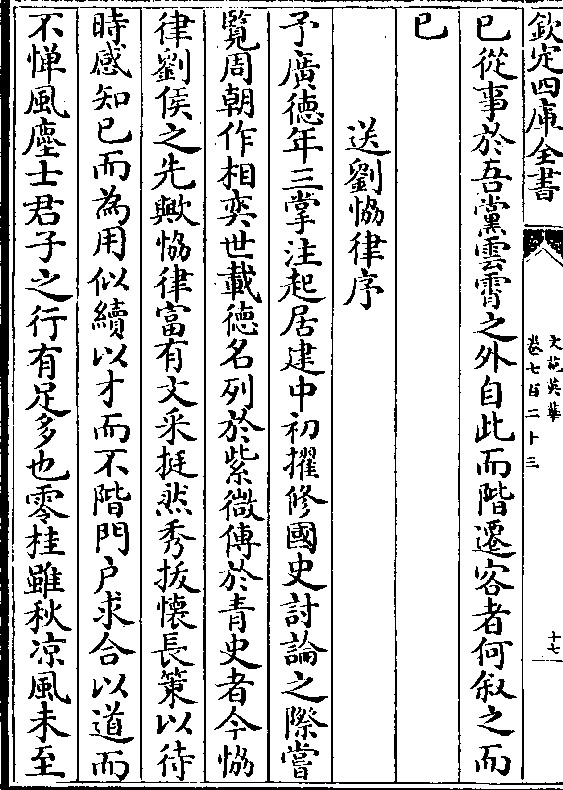 欽定四庫全書
文苑英華
卷七百二十三
十七
已從事於吾黨雲霄之外自此而階遷客者何叙之而
已
送劉恊律序
予廣徳年三掌注起居建中初擢修國史討論之際嘗
覧周朝作相奕世載徳名列於紫微傳於青史者今恊
律劉侯之先歟恊律富有文采挺然秀拔懐長策以待
時感知已而為用似續以才而不階門户求合以道而
不憚風塵士君子之行有足多也零桂雖秋凉風未至